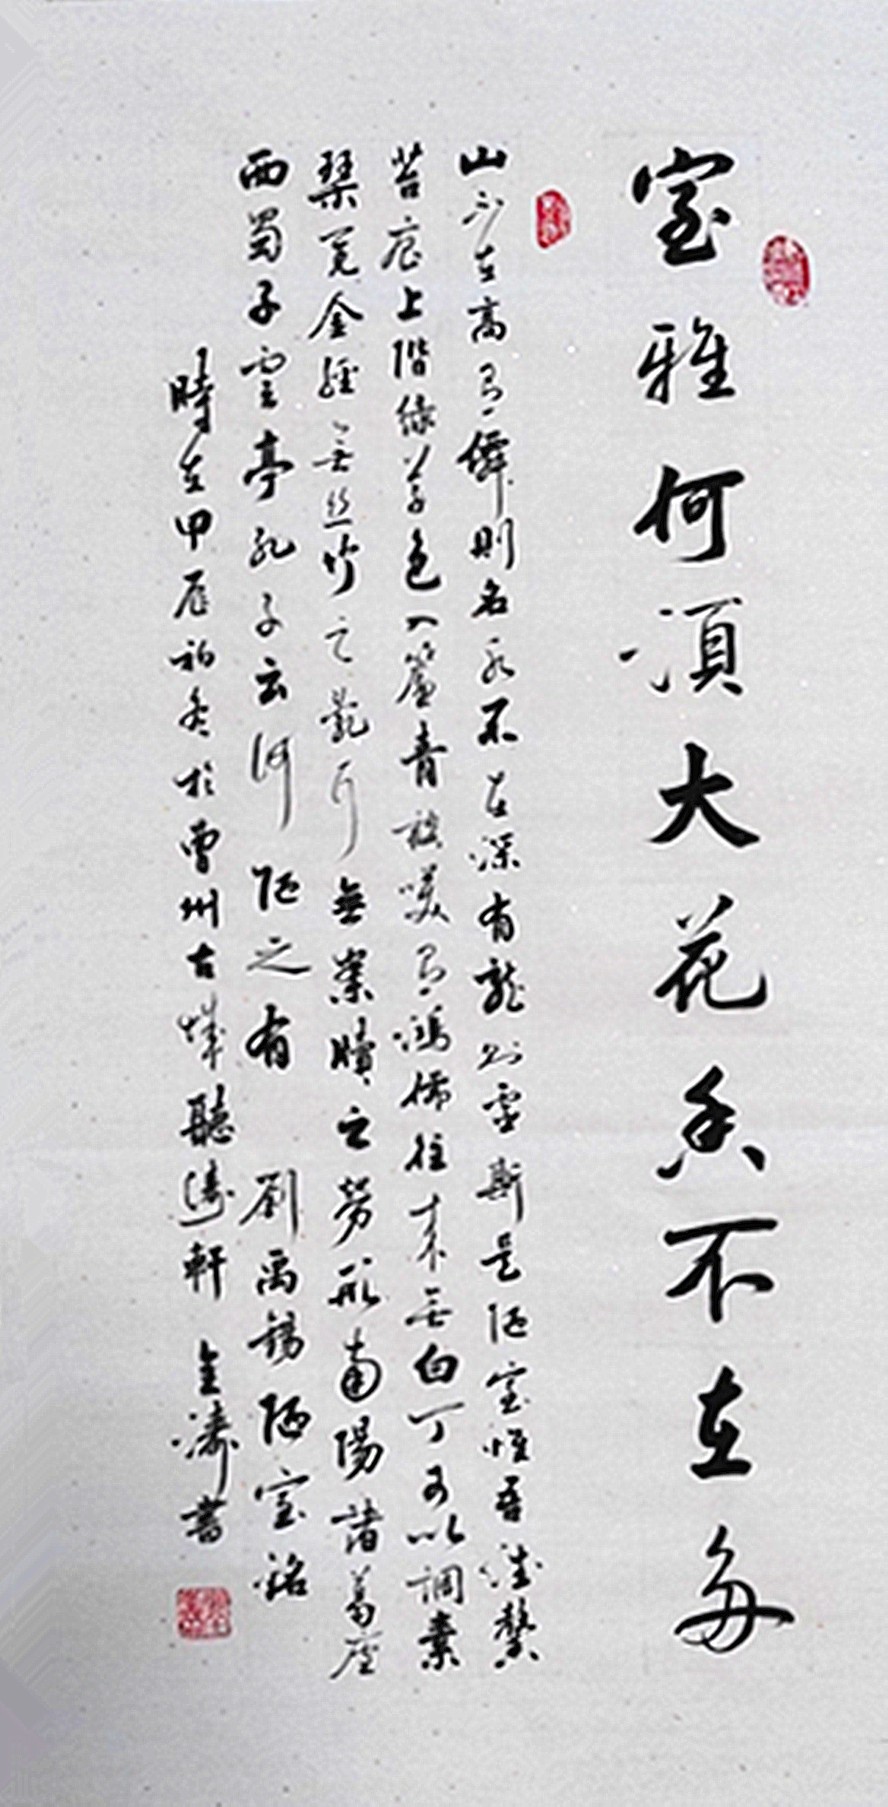 室雅何湏大花香不在多
山不在高有僊則名水不在深有龍則靈斯是陋室惟吾德馨
苔痕上階綠草色入簾青談笑有鴻儒往來無白丁可以調素
琴閱金經無絲竹之亂耳無案牘之勞形南陽諸葛廬
西蜀子雲亭孔子云何陋之有 劉禹錫陋室銘
時在甲辰初冬於曹州古城聽濤軒 金濤書